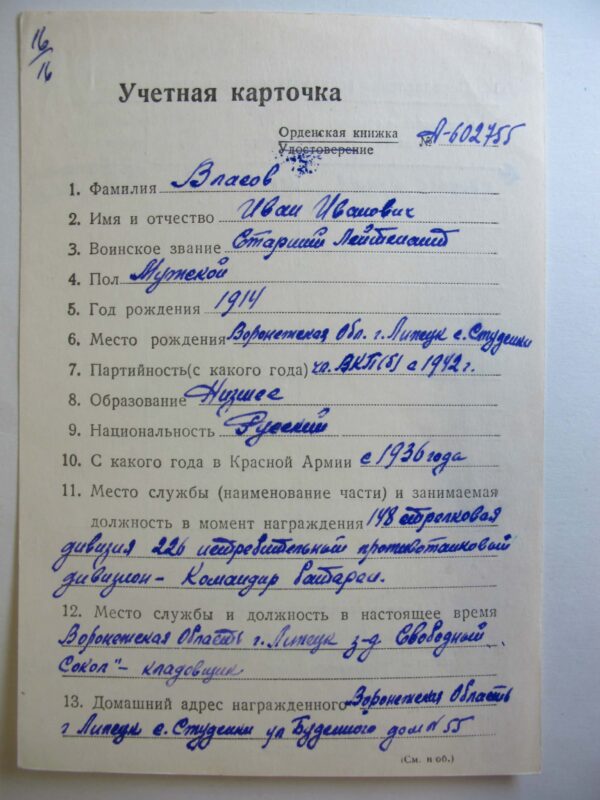 16/16
Учетная карточка
Орденская книжка
Удостоверение № А-602755
1. Фамилия Власов
2. Имя и отчество Иван Иванович
3. Воинское звание Старший Лейтенант
4. Пол Мужской
5. Год рождения 1914
6. Место рождения Воронежская Обл. г. Липецк с. Студенки
7. Партийность(с какого года) чл. ВКП(б) с 1942 г.
8. Образование Низшее
9. Национальность Русский
10. С какого года в Красной Армии с 1936 года
11. Место службы (наименование части) и занимаемая
должность в момент награждения 148 стрелковая
дивизия 226 истребительный противотанковый
дивизион - Командир батареи.
12. Место службы и должность в настоящее время
Воронежская Область г. Липецк з-д. Свободный
Сокол" - кладовщик
13. Домашний адрес награжденного Воронежская Область
г Липецк с. Студенки ул Буденного дом N 55
(См. н об.)